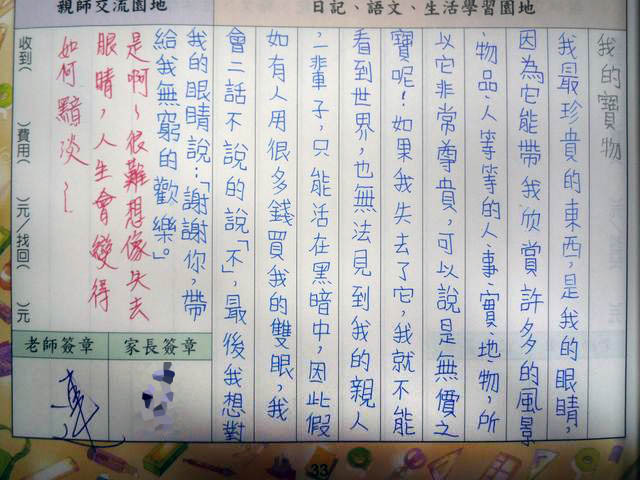 日記、語文、生活學習園地
我的寶物
我最珍貴的東西，是我的眼睛，
因為它能帶我欣賞許多的風景
、物品、人等等的人、事、實、地物，所
以它非常尊貴，可以說是無價之
寶呢！如果我失去了它，我就不能
看到世界，也無法見到我的親人
，一輩子，只能活在黑暗中，因此假
如有人用很多錢買我的雙眼，我
會二話不說的說「不」，最後我想對
我的眼睛說：「謝謝你，帶
給我無窮的歡樂。」
親師交流園地
是啊～很難想像失去
眼睛，人生會變得
如何黯淡～
收到( )費用( )元/找回( )元
家長簽章
老師簽章
33